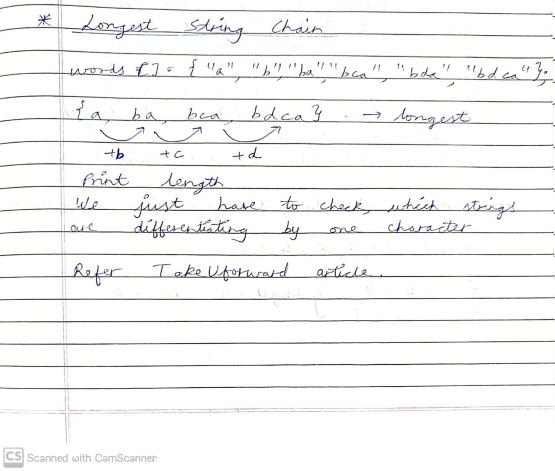 * Longest string chain
words [] = { "a", "b", "ba", "bca", "bda", "bdca" };
{ a, ba, bca, bdca } → longest
+b +c +d
Print length
We just have to check, which strings
are differentiating by one character
Refer TakeUforward article.
CS Scanned with CamScanner